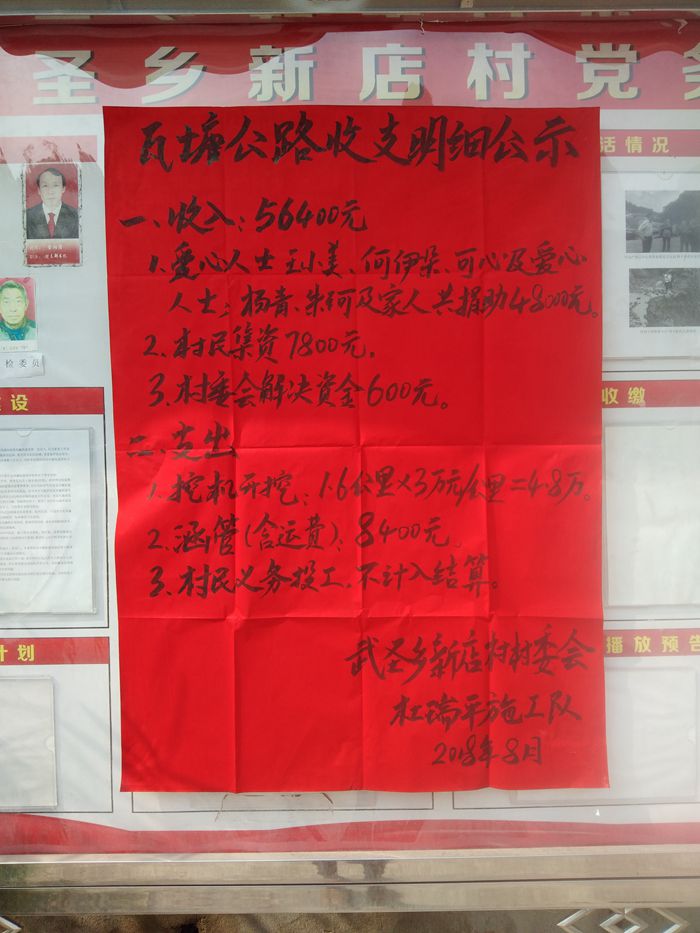 圣乡新店村党务
活情况
检委员
设
收缴
计划
播放预告
瓦塘公路收支明细公示
一、收入：56400元
1.爱心人士王小美、何伊朵、可心及爱心
人士：杨青、朱珂及家人共捐助48000元。
2.村民集资7800元。
3.村委会解决资金600元。
二、支出
1.挖机开挖：1.6公里×3万元/公里=4.8万。
2.涵管（含运费）：8400元。
3.村民义务投工，不计入结算。
武圣乡新店村村委会
杜瑞平施工队
2018年8月